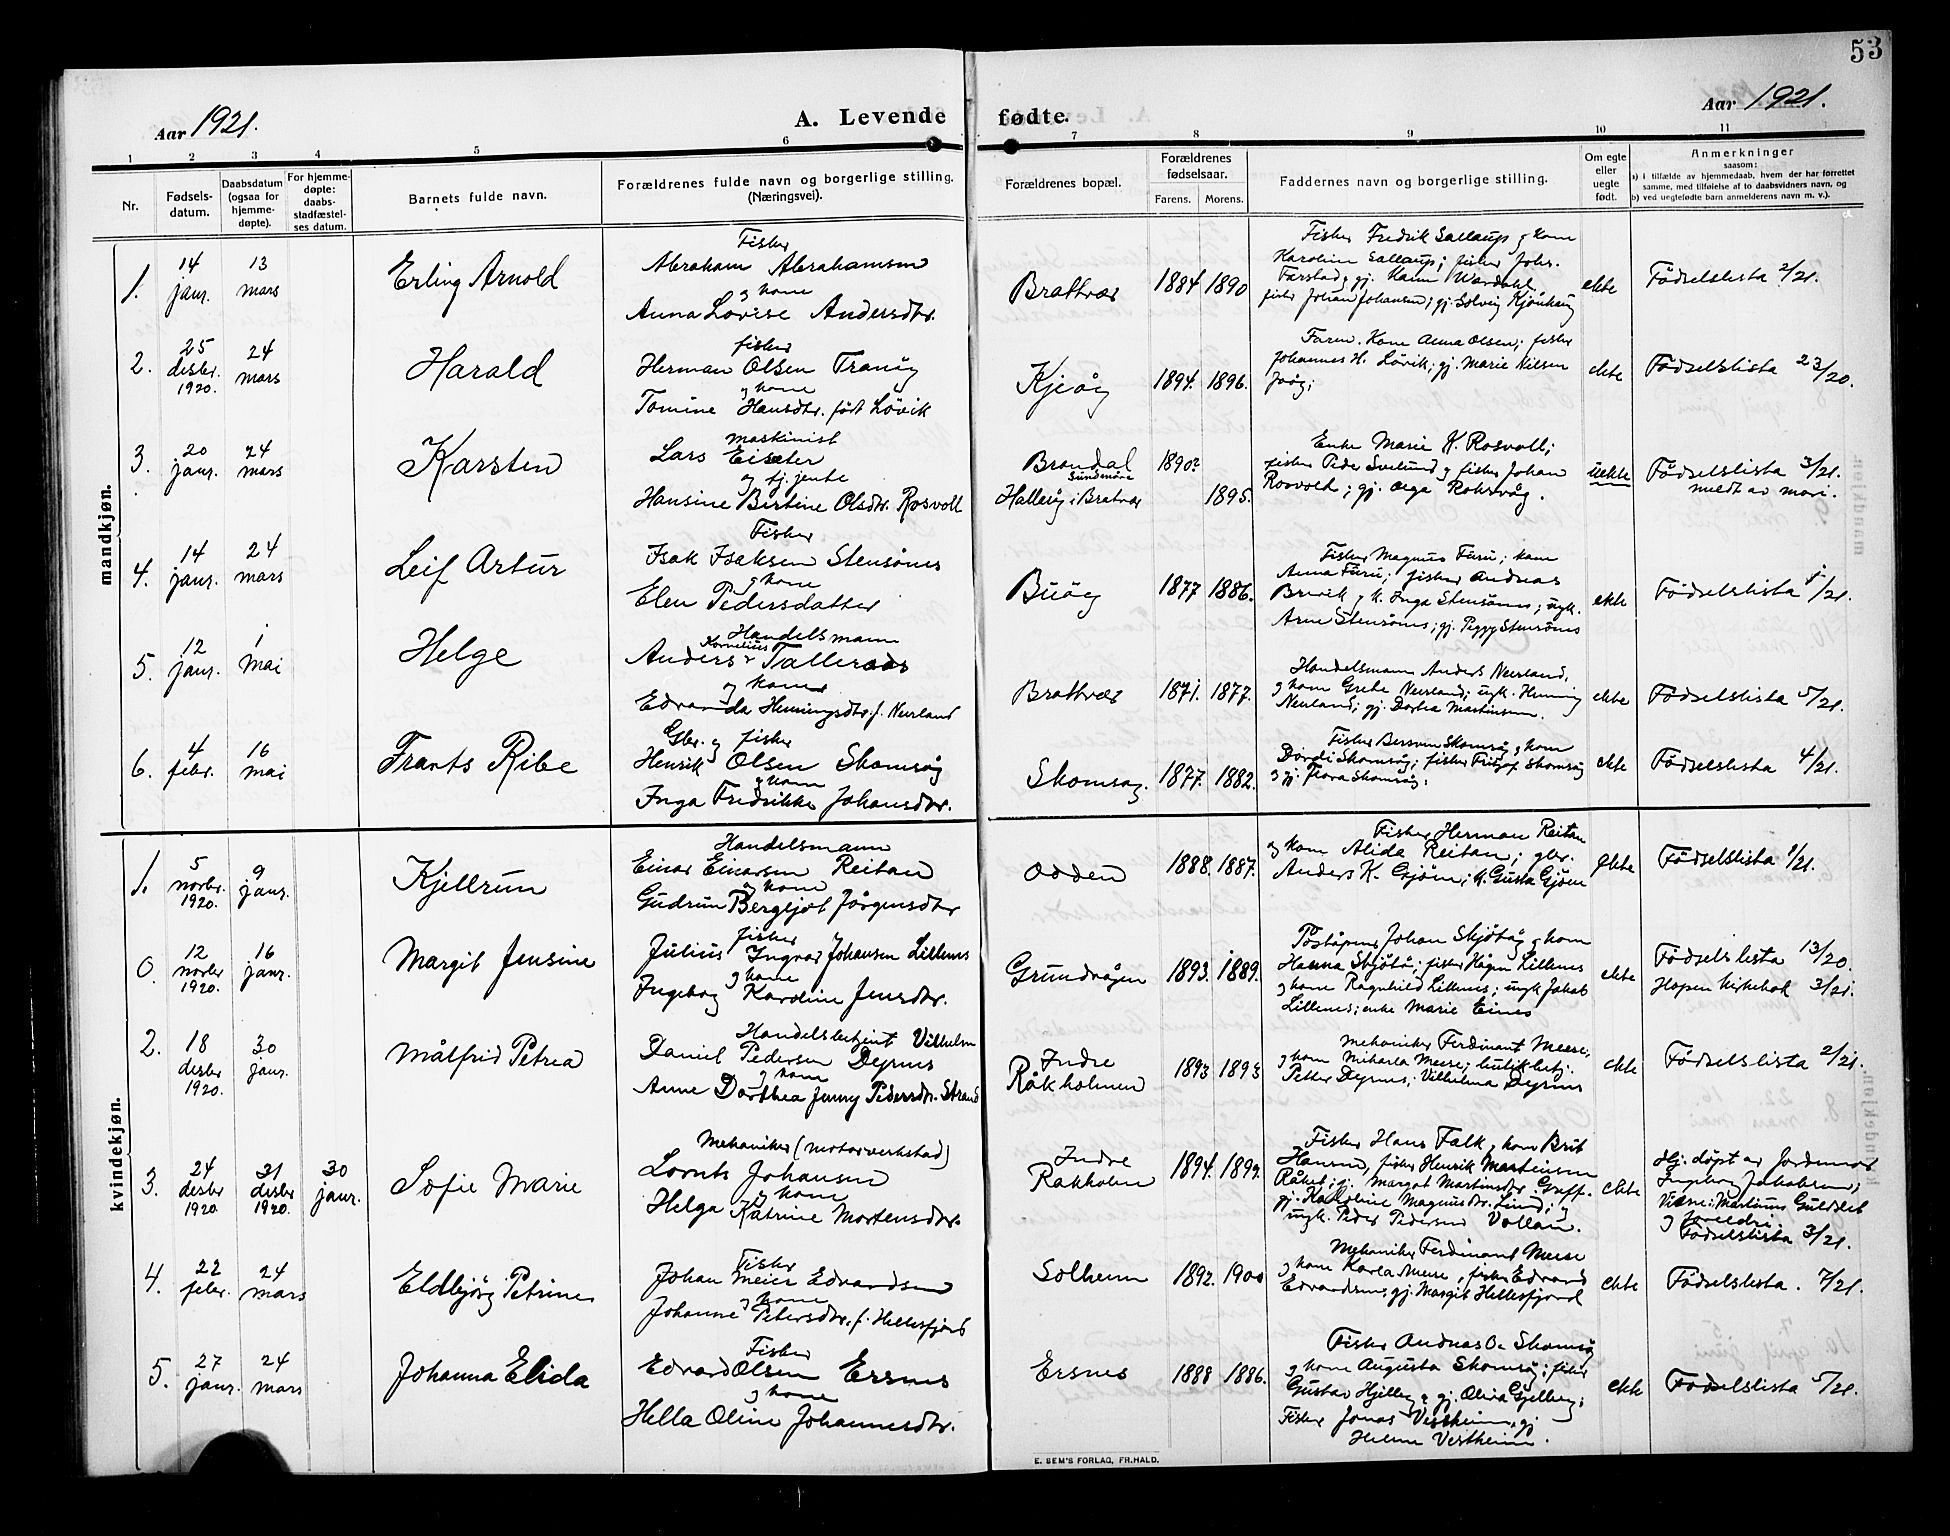 53
Aar 1921.
A. Levende fødte.
Aar 1921.
1 2 3 4 5 6 7 8 9 10 11
Nr.
Fødsels-
datum.
Daabsdatum
(ogsaa for
hjemme-
døpte).
For hjemme-
døpte:
daabs-
stadfæstel-
ses datum.
Barnets fulde navn.
Forældrenes fulde navn og borgerlige stilling.
(Næringsvei).
Forældrenes bopæl.
Forældrenes
fødselsaar.
Farens. Morens.
Faddernes navn og borgerlige stilling.
Om egte
eller
uegte
født.
Anmerkninger
saasom:
a) i tilfælde av hjemmedaab, hvem der har forrettet
samme, med tilføielse af to daabsvidners navn, og
b) ved uegtefødte barn anmelderens navn m. v.).
mandkjøn.
1.
14
janr.
13
mars
Erling Arnold
Fisker
Abraham Abrahamsen
og kone
Anna Lovise Andersdtr.
Brattvær
1884 1890
Fisker Fredrik Sallaup og kone
Karoline Sallaup; fisker Johs.
fisker Johan Johansen; gj. Solveig
ekte
Fødselslista 2/21.
2.
25
desbr.
1920.
24
mars
Harald
fisker
Herman Olsen
og kone
Tomine Hansdtr. født Løvik
Kjeøy
1894. 1896.
Faren. Kone Anna Olsen; fisker
Johannes H. Løvik; gj. Marie Nilsen
ekte
Fødselslista 23/20.
3.
20
janr.
24
mars
Karsten
maskinist
Lars
og tj. jente
Hansine Birtine Olsdtr. Rosvoll
Brandal
Sundmøre
Hallerøy i Bratvær
1890?
1895.
Enke Marie K. Rosvoll;
fisker Peder Svelund og fisker Johan
Rosvold; gj. Olga
uekte
Fødselslista 3/21.
meldt av mori.
4.
14
janr.
24
mars
Leif Artur
Fisker
Isak Isaksen Stensønes
og kone
Elen Pedersdatter
Buøy
1877 1886.
Fisker Magnus Furu; kone
Anna Furu; fisker Andreas
Brevik og k. Inga Stensønes; ugk.
Arne Stensønes; gj. Peggy Stensønes
ekte
Fødselslista 1/21.
5.
12
janr.
1
mai
Helge
Handelsmann
Kornelius
Anders Talleraas
og kone
Edvarda Henningsdtr. f. Neerland
Brattvær
1871. 1877.
Handelsmann Anders Neerland,
og kone Grete Neerland; ugk. Henning
Neerland; gj. Dortea Martinsen.
ekte
Fødselslista 5/21.
6.
4
febr.
16
mai
Frants Ribe
Gbr. og fisker
Henrik Olsen Skomsøy
og kone
Inga Fredrikke Johansdtr.
Skomsøy.
1877. 1882.
Fisker Bersven Skomsøy og kone
Dordi Skomsøy; fisker Fritjof Skomsøy
og gj. Flora Skomsøy.
ekte
Fødselslista 4/21.
kvindekjøn.
1.
5
novbr.
1920.
9
janr.
Kjellrun
Handelsmann
Einar Einarsen Reitan
og kone
Gudrun Bergljot Jørgensdtr
Odden
1888. 1887.
Fisker Herman Reitan
og kone Alida Reitan; gbr.
Anders K. Gjøen; k. Gusta Gjøen
ekte
Fødselslista 1/21.
0.
12
novbr
1920.
16
janr.
Margit Jensine
fisker
Julius Ingvar Johansen Lillenes
og kone
Ingeborg Karoline Jensdtr.
Grundvågen
1893. 1889.
Johan Skjøtøy og kone
Hanna Skjøtøy; fisker Hågen Lillenes
og kone Ragnhild Lillenes; ugk Jakob
Lillenes; enke Marie Eines
ekte
Fødselslista 13/20.
Hopen kirkebok 3/21.
2.
18
desbr
1920.
30
janr.
Målfrid Petrea
Handelsbetjent Vilhelm
Daniel Pedersen Dyrnes
og kone
Anne Dorthea Jenny Pedersdtr. Strand
Indre
Råkholmen
1893 1893
Mekaniker Ferdinant Meese,
og kone Mikaela Meese; butikbetj.
Petter Dyrnes; Vilhelma Dyrnes
ekte
Fødselslista 2/21.
3.
24
desbr
1920.
31
desbr
1920.
30
janr.
Sofie Marie
Mekaniker (motorverkstad)
Lornts Johansen
og kone
Helga Katrine Mortensdtr.
Indre
Råkholm
1894. 1899.
Fisker Hans Falk og kone Brit
Hansen, fisker Henrik Martinsen
Råket; gj. Margot Martinsdtr Greff.
gj. Karoline Magnusdtr. Lund; og
ugk. Peder Pedersen Vollan.
ekte
Hj. døpt av Jordmor
Ingeborg Jakobsen;
Vitne: Martinus Guldset
og foreldri.
Fødselslista 3/21.
4.
22
febr.
24
mars
Eldbjørg Petrine
Fisker
Johan Meier Edvardsen
og kone
Johanne Petersdtr. f. Hellesfjord
Solheim
1892. 1900
Mekaniker Ferdinand Meese
og kone Karla Meese, fisker Edvard
Edvardsen, gj. Margit Hellesfjord
ekte
Fødselslista. 7/21.
5.
27
janr.
24
mars
Johanna Elida
Fisker
Edvard Olsen Ersnes
og kone
Hella Oline Johannesdtr.
Ersnes
1888 1886.
Fisker Andreas O. Skomsøy
og kone Augusta Skomsøy; fisker
Gustav og gj. Olivia
Fisker Jonas Vestheim, gj.
Helene Vestheim.
ekte
Fødselslista 5/21.
E. SEM'S FORLAG, FR.HALD.